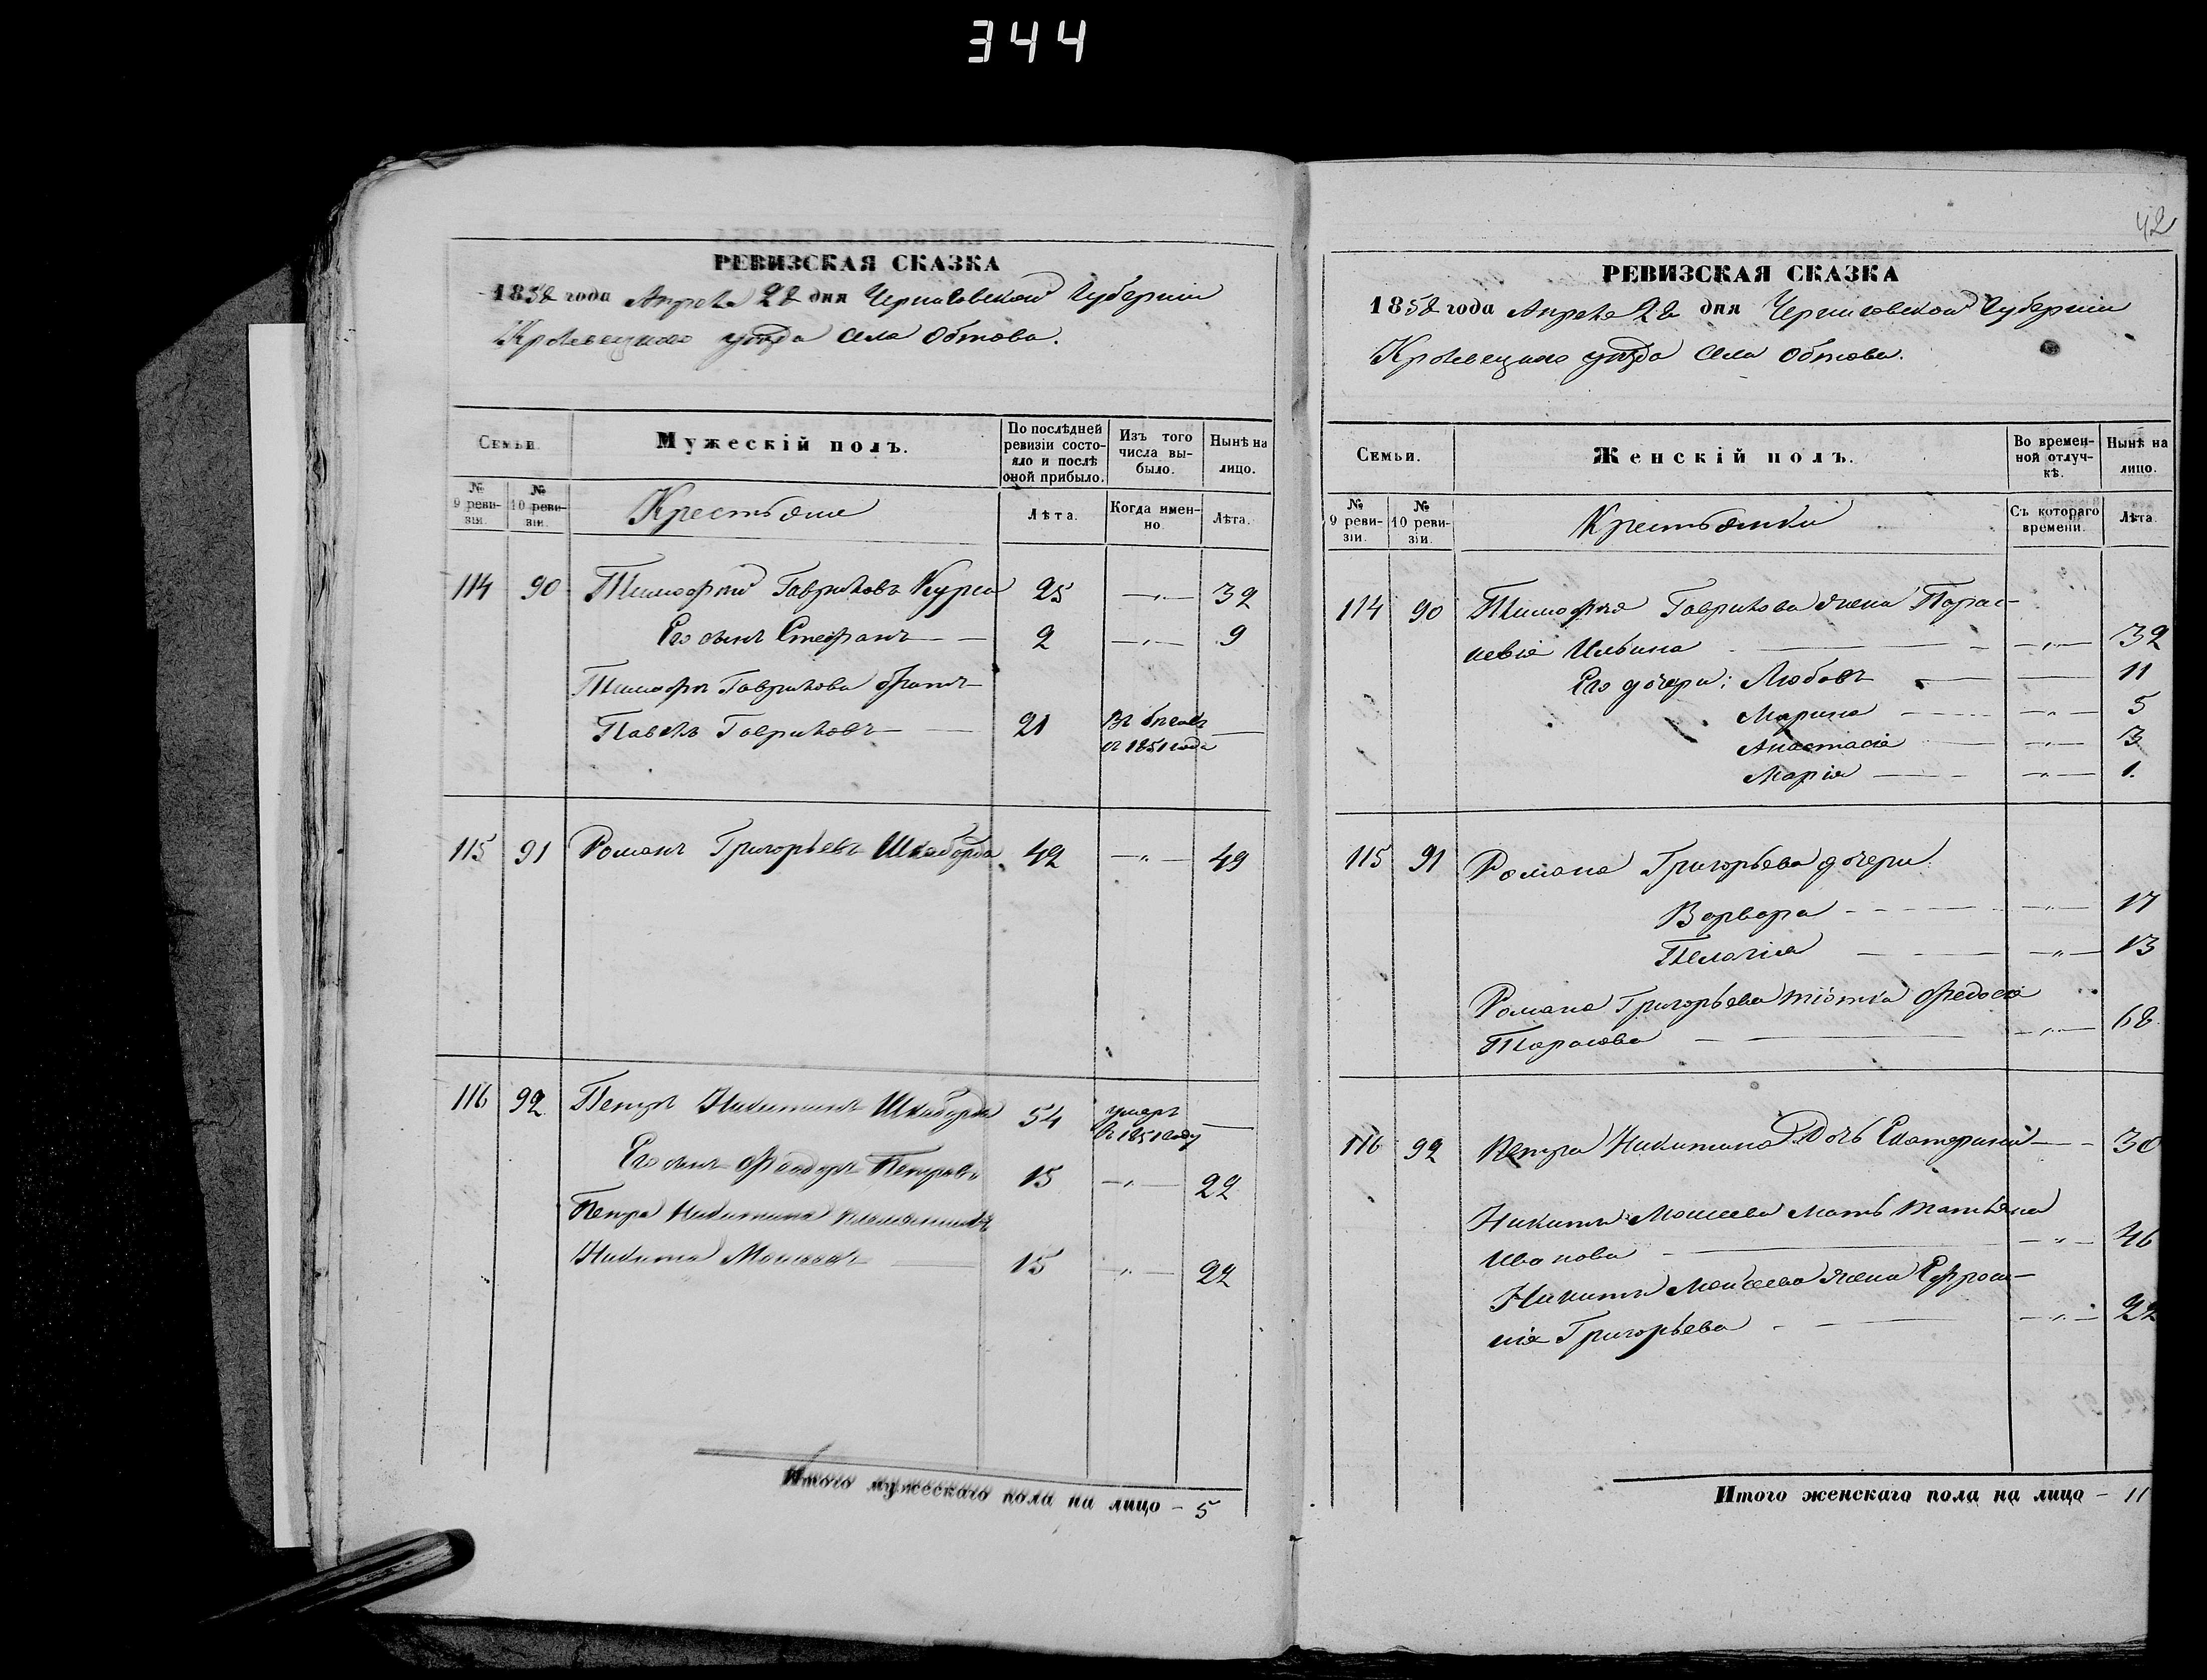 344
РЕВИЗСКАЯ СКАЗКА
1858 года Апреля 28 дня Черниговской Губерніи
Кролевецкаго уѣзда села Обтова.
Семьи.
Мужескій полъ.
По послѣдней ревизіи состояло и послѣ оной прибыло.
Изъ того числа выбыло.
Нынѣ на лицо.
№ 9 ревизіи.
№ 10 ревизіи.
Крестьяне
Лѣта.
Когда именно.
Лѣта.
114 90 Тимофей Гавриловъ Курса 25 —„— 32
Его сынъ Стефанъ — — 2 —„— 9
Тимофея Гаврилова братъ
Павелъ Гавриловъ — — 21 Въ бегахъ —
съ 1851 года
115 91 Романъ Григорьевъ Шкабура 42 —„— 49
116 92 Петръ Никитинъ Шкабура 54 умеръ —
въ 1851 году
Его сынъ Петровъ 15 —„— 22
Петра Никитина племянникъ
Никита Моисеевъ — 15 —„— 22
Итого мужескаго пола на лицо – 5
42
РЕВИЗСКАЯ СКАЗКА
1858 года Апреля 28 дня Черниговской Губерніи
Кролевецкаго уѣзда села Обтова.
Семьи.
Женскій полъ.
Во временной отлучкѣ.
Нынѣ на лицо.
№ 9 ревизіи.
№ 10 ревизіи.
Крестьянки
Съ котораго времени.
Лѣта.
114 90 Тимофея Гаврилова жена Парас-
кевія Ильина — —„— 32
Его дочери: Любовь — —„— 11
Марина — —„— 5
Анастасія — —„— 3
Марія — —„— 1.
115 91 Романа Григорьева дочери
Варвара — —„— 17
Пелагія — —„— 13
Романа Григорьева тіотка Федосія
Тарасова — —„— 68
116 92 Петра Никитина Дочь Екатерина — — 30
Никиты Моисеева мать Татьяна
Иванова — —„— 46
Никиты Моисеева жена Ефроси-
нія Григорьева — —„— 22
Итого женскаго пола на лицо – 11